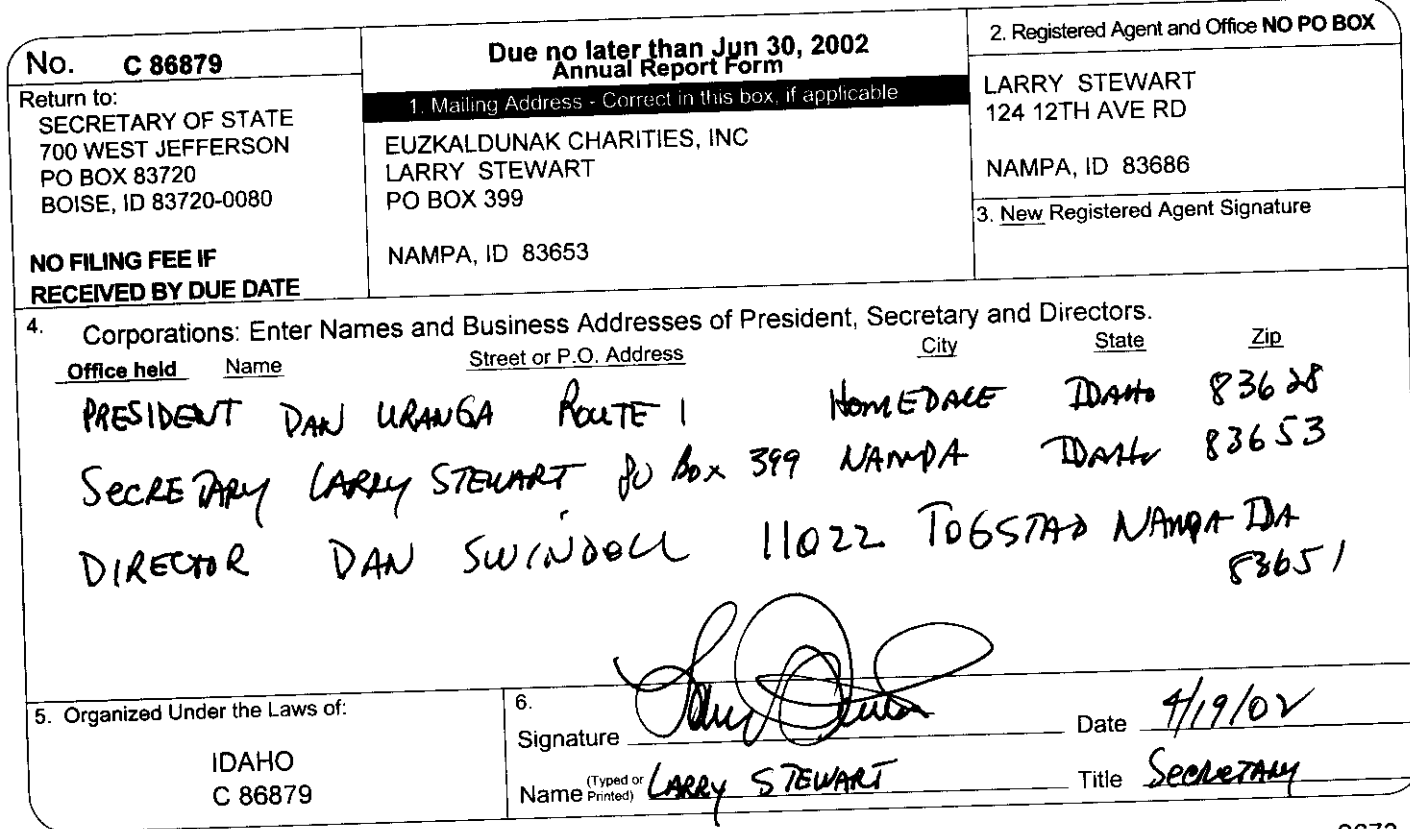 No. C 86879
Return to:
SECRETARY OF STATE
700 WEST JEFFERSON
PO BOX 83720
BOISE, ID 83720-0080
NO FILING FEE IF
RECEIVED BY DUE DATE
Due no later than Jun 30, 2002
Annual Report Form
1. Mailing Address - Correct in this box, if applicable
EUZKALDUNAK CHARITIES, INC
LARRY STEWART
PO BOX 399
NAMPA, ID 83653
2. Registered Agent and Office NO PO BOX
LARRY STEWART
124 12TH AVE RD
NAMPA, ID 83686
3. New Registered Agent Signature
4. Corporations: Enter Names and Business Addresses of President, Secretary and Directors.
Office held Name Street or P.O. Address City State Zip
PRESIDENT DAN URANGA ROUTE 1 HOMEDALE IDAHO 83628
SECRETARY LARRY STEWART PO BOX 399 NAMPA IDAHO 83653
DIRECTOR DAN SWINDELL 11022 TOGSTAD NAMPA IDA
83651
5. Organized Under the Laws of:
IDAHO
C 86879
6.
Signature Date 4/19/02
Name (Typed or Printed) LARRY STEWART Title SECRETARY